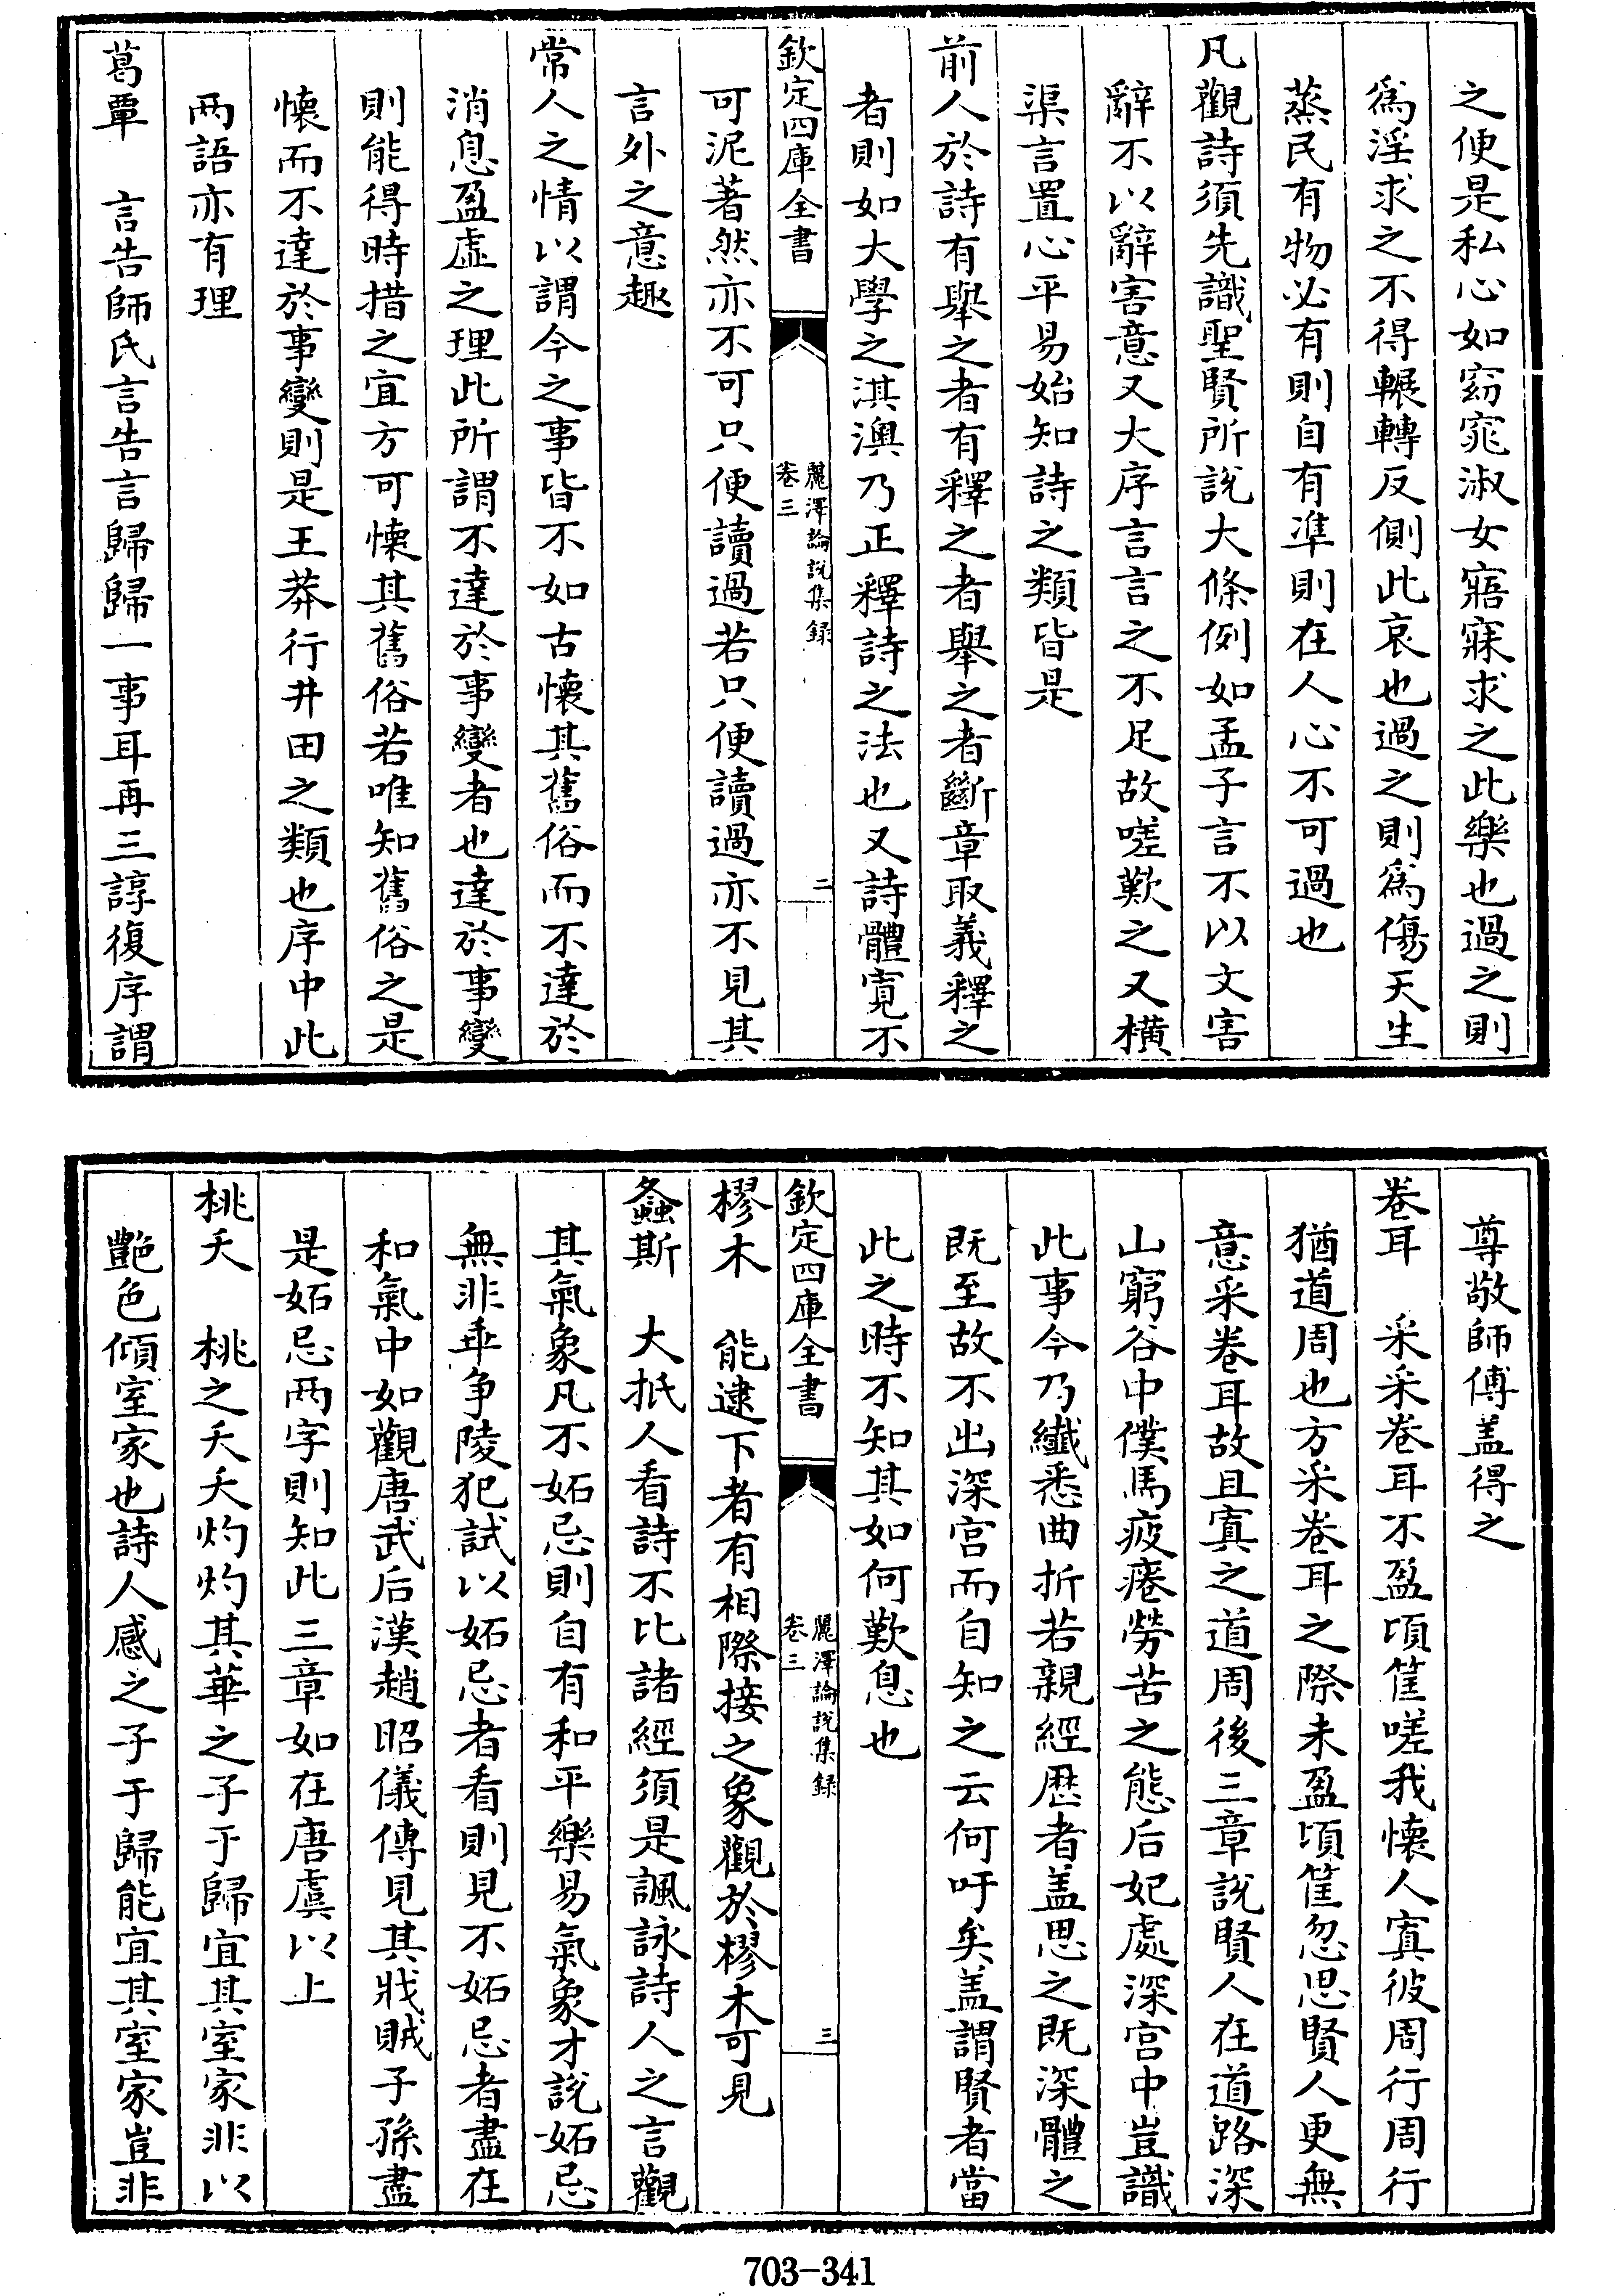 之便是私心如窈窕淑女寤寐求之此樂也過之則
為淫求之不得輾轉反側此哀也過之則為傷天生
蒸民有物必有則自有準則在人心不可過也
凡觀詩須先識聖賢所說大條例如孟子言不以文害
辭不以辭害意又大序言言之不足故嗟歎之又橫
渠言置心平易始知詩之類皆是
前人於詩有舉之者有釋之者舉之者斷章取義釋之
者則如大學之淇澳乃正釋詩之法也又詩體寬不
欽定四庫全書
麗澤論說集録
卷三
二
可泥著然亦不可只便讀過若只便讀過亦不見其
言外之意趣
常人之情以謂今之事皆不如古懷其舊俗而不達於
消息盈虛之理此所謂不達於事變者也達於事變
則能得時措之宜方可懷其舊俗若唯知舊俗之是
懷而不達於事變則是王莽行井田之類也序中此
两語亦有理
葛覃　言告師氏言告言歸歸一事耳再三諄復序謂
尊敬師傅盖得之
卷耳　采采卷耳不盈頃筐嗟我懷人寘彼周行周行
猶道周也方采卷耳之際未盈頃筐忽思賢人更無
意采卷耳故且寘之道周後三章說賢人在道路深
山窮谷中僕馬疲瘏勞苦之態后妃處深宫中豈識
此事今乃纎悉曲折若親經歴者盖思之既深體之
既至故不出深宫而自知之云何吁矣盖謂賢者當
此之時不知其如何歎息也
欽定四庫全書
麗澤論說集録
卷三
三
樛木　能逮下者有相際接之象觀於樛木可見
螽斯　大抵人看詩不比諸經須是諷詠詩人之言觀
其氣象凡不妬忌則自有和平樂易氣象才說妬忌
無非乖争陵犯試以妬忌者看則見不妬忌者盡在
和氣中如觀唐武后漢趙昭儀傳見其戕賊子孫盡
是妬忌两字則知此三章如在唐虞以上
桃夭　桃之夭夭灼灼其華之子于歸宜其室家非以
艷色傾室家也詩人感之子于歸能宜其室家豈非
703-341